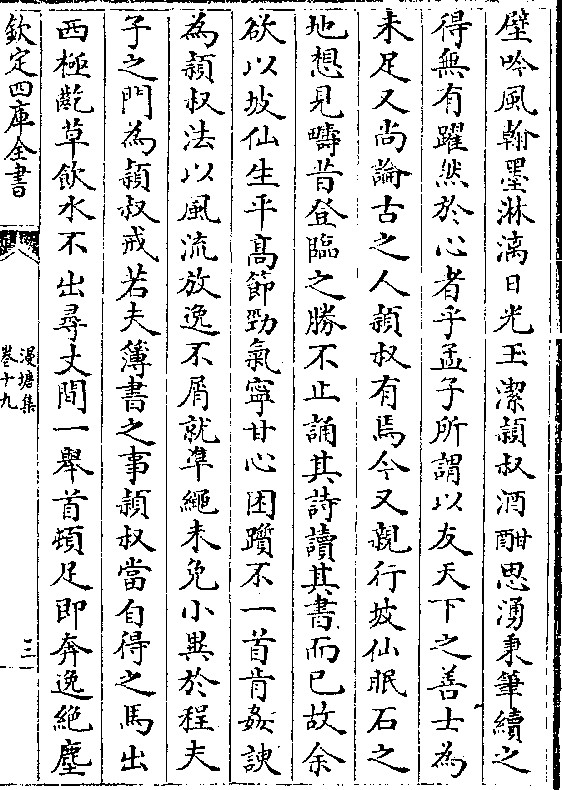 壁吟風翰墨淋漓日光玉潔頴叔酒酣思湧秉筆續之
得無有躍然於心者乎孟子所謂以友天下之善士為
未足又尚論古之人頴叔有焉今又親行坡仙眠石之
地想見疇昔登臨之勝不止誦其詩讀其書而已故余
欲以坡仙生平髙節勁氣寧甘心困躓不一首肯姦諛
為頴叔法以風流放逸不屑就凖繩未免小異於程夫
子之門為頴叔戒若夫簿書之事頴叔當自得之馬出
西極齕草飲水不出尋丈間一舉首頓足即奔逸絶塵
欽定四庫全書
漫塘集
巻十九
三